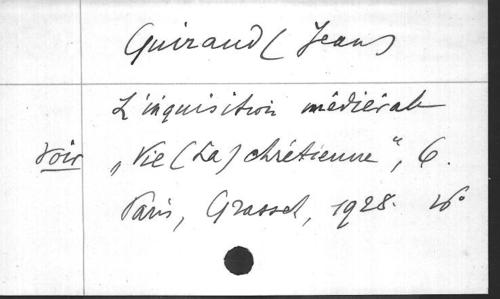 Guiraud (Jean)
L'inquisition médiévale
voir „Vie (La) chrétienne", 6.
Paris, Grasset, 1928. 16°